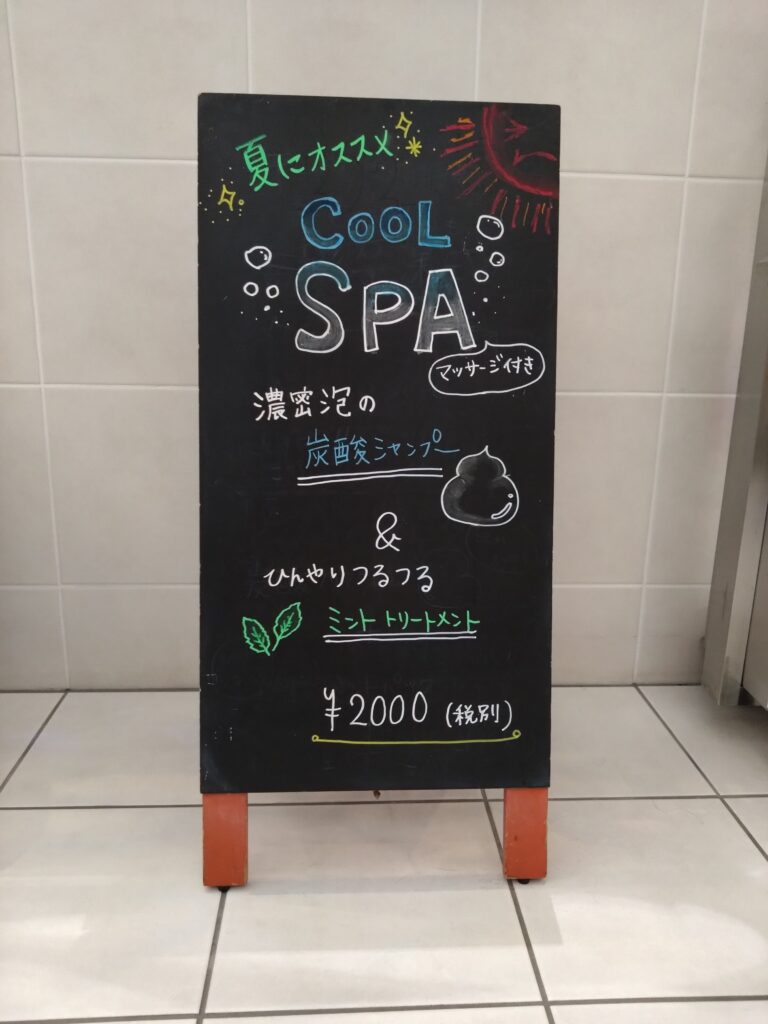 夏にオススメ
COOL
SPA
マッサージ付き
濃密泡の
炭酸シャンプー
&
ひんやりつるつる
ミントトリートメント
¥2000 (税別)